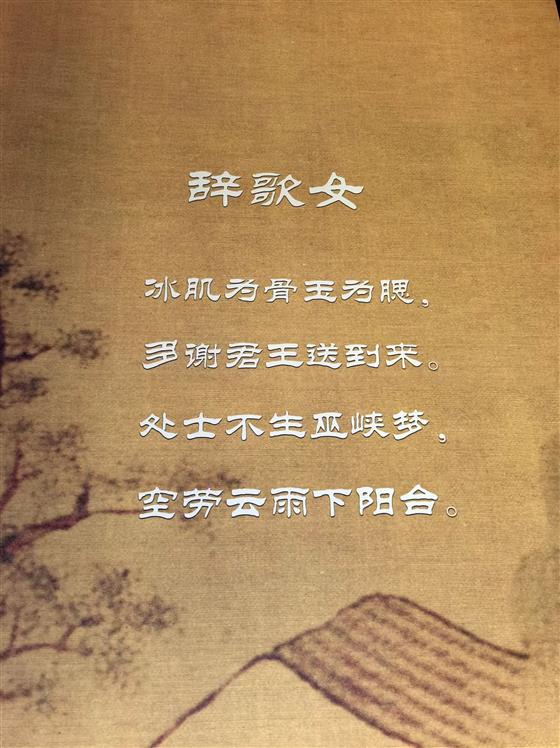 辞歌女
冰肌为骨玉为腮，
多谢君王送到来。
处士不生巫峡梦，
空劳云雨下阳台。